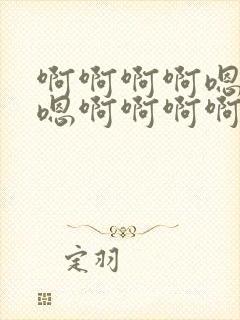 啊啊啊啊嗯
嗯啊啊啊啊
定羽